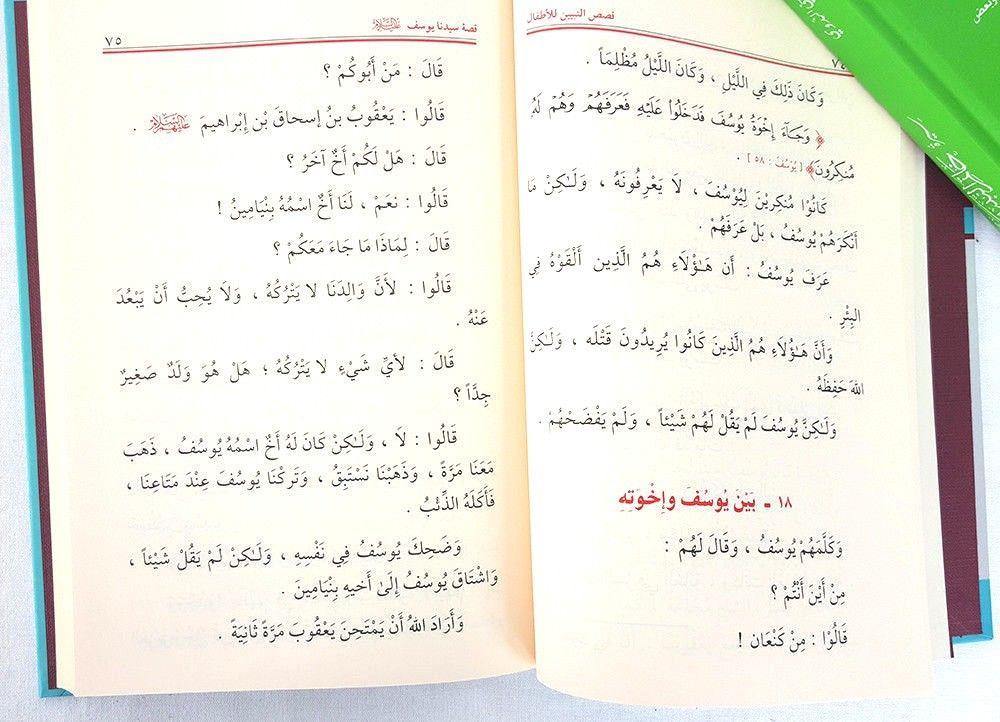 قصص النبيين للأطفال
٧٤
وَكَانَ ذَلِكَ فِي اللَّيْلِ ، وَكَانَ اللَّيْلُ مُظْلِمَاً .
﴿ وَجَآءَ إِخْوَةُ يُوسُفَ فَدَخَلُواْ عَلَيْهِ فَعَرَفَهُمْ وَهُمْ لَهُ
مُنكِرُونَ﴾ [يُوسُفُ : ٥٨ ] .
كَانُوْا مُنكِرِيْنَ لِيُوْسُفَ ، لَا يَعْرِفُونَهُ ، وَلَـٰكِنْ مَا
أَنْكَرَهُمْ يُوسُفُ ، بَلْ عَرَفَهُمْ .
عَرَفَ يُوسُفُ : أَن هَـٰؤُلَاءِ هُمُ الَّذِين أَلْقَوْهُ فِي
البِئْرِ .
وَأَنَّ هَـٰؤُلَاءِ هُمُ الَّذِينَ كَانُوا يُرِيدُونَ قَتْلَه ، وَلَـٰكِنَّ
اللهَ حَفِظَهُ .
وَلَـٰكِنَّ يُوسُفَ لَمْ يَقُلْ لَهُمْ شَيْئاً ، وَلَمْ يَفْضَحْهُمْ .
١٨ ـ بَيْنَ يُوسُفَ وإِخْوَتِهِ
وَكَلَّمَهُمْ يُوسُفُ ، وَقَالَ لَهُمْ :
مِنْ أَيْنَ أَنْتُمْ ؟
قَالُوْا : مِنْ كَنْعَان !
قصة سيدنا يوسف عليه السلام
٧٥
قَالَ : مَنْ أَبُوكُمْ ؟
قَالُوا : يَعْقُوبُ بنُ إسحاقَ بْنِ إبْراهيمَ عليهم السلام .
قَالَ : هَلْ لَكُمْ أَخٌ آخَرُ ؟
قَالُوا : نعَمْ ، لَنَا أَخٌ اسْمُهُ بِنْيَامِينُ !
قَالَ : لِمَاذَا مَا جَاءَ مَعَكُمْ ؟
قَالُوا : لأَنَّ وَالِدَنَا لا يَتْرُكُهُ ، وَلَا يُحِبُّ أَنْ يَبْعُدَ
عَنْهُ .
قَالَ : لأيِّ شَيْءٍ لا يَتْرُكُهُ ؛ هَلْ هُوَ وَلَدٌ صَغِيرٌ
جِدَّاً ؟
قَالُوا : لَا ، وَلَـٰكِنْ كَانَ لَهُ أَخٌ اسْمُهُ يُوسُفُ ، ذَهَبَ
مَعَنَا مَرَّةً ، وَذَهَبْنَا نَسْتَبِقُ ، وَتَركْنَا يُوسُفَ عِنْدَ مَتَاعِنَا ،
فَأَكَلَهُ الذِّئْبُ .
وَضَحِكَ يُوسُفُ فِي نَفْسِهِ ، وَلَـٰكِنْ لَمْ يَقُلْ شَيْئاً ،
وَاشْتَاقَ يُوسُفُ إلَىٰ أَخيهِ بِنْيَامِينَ .
وَأَرَادَ اللهُ أَنْ يَمْتَحِنَ يَعْقُوبَ مَرَّةً ثَانِيَةً .